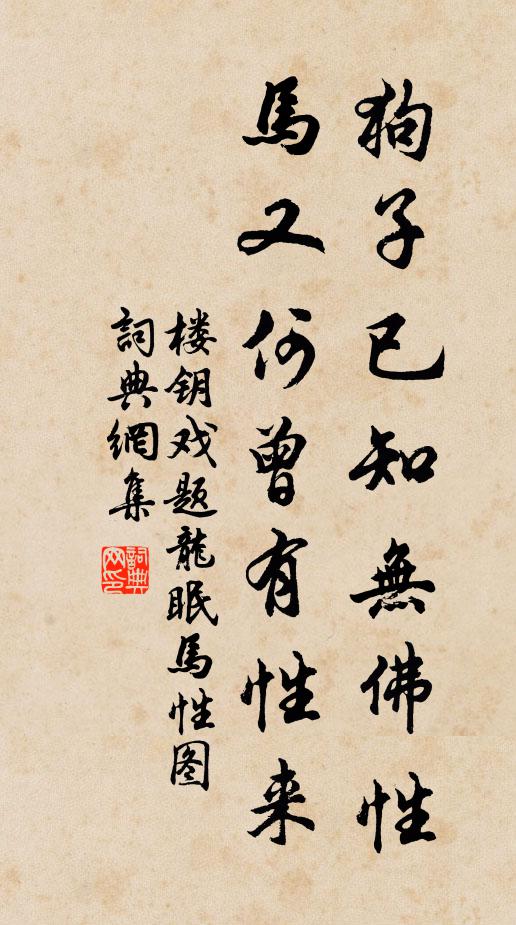 狗子已知無佛性
馬又何曾有性来
楼钥戏题龍眠馬性图
詞典網集
詞典
网印